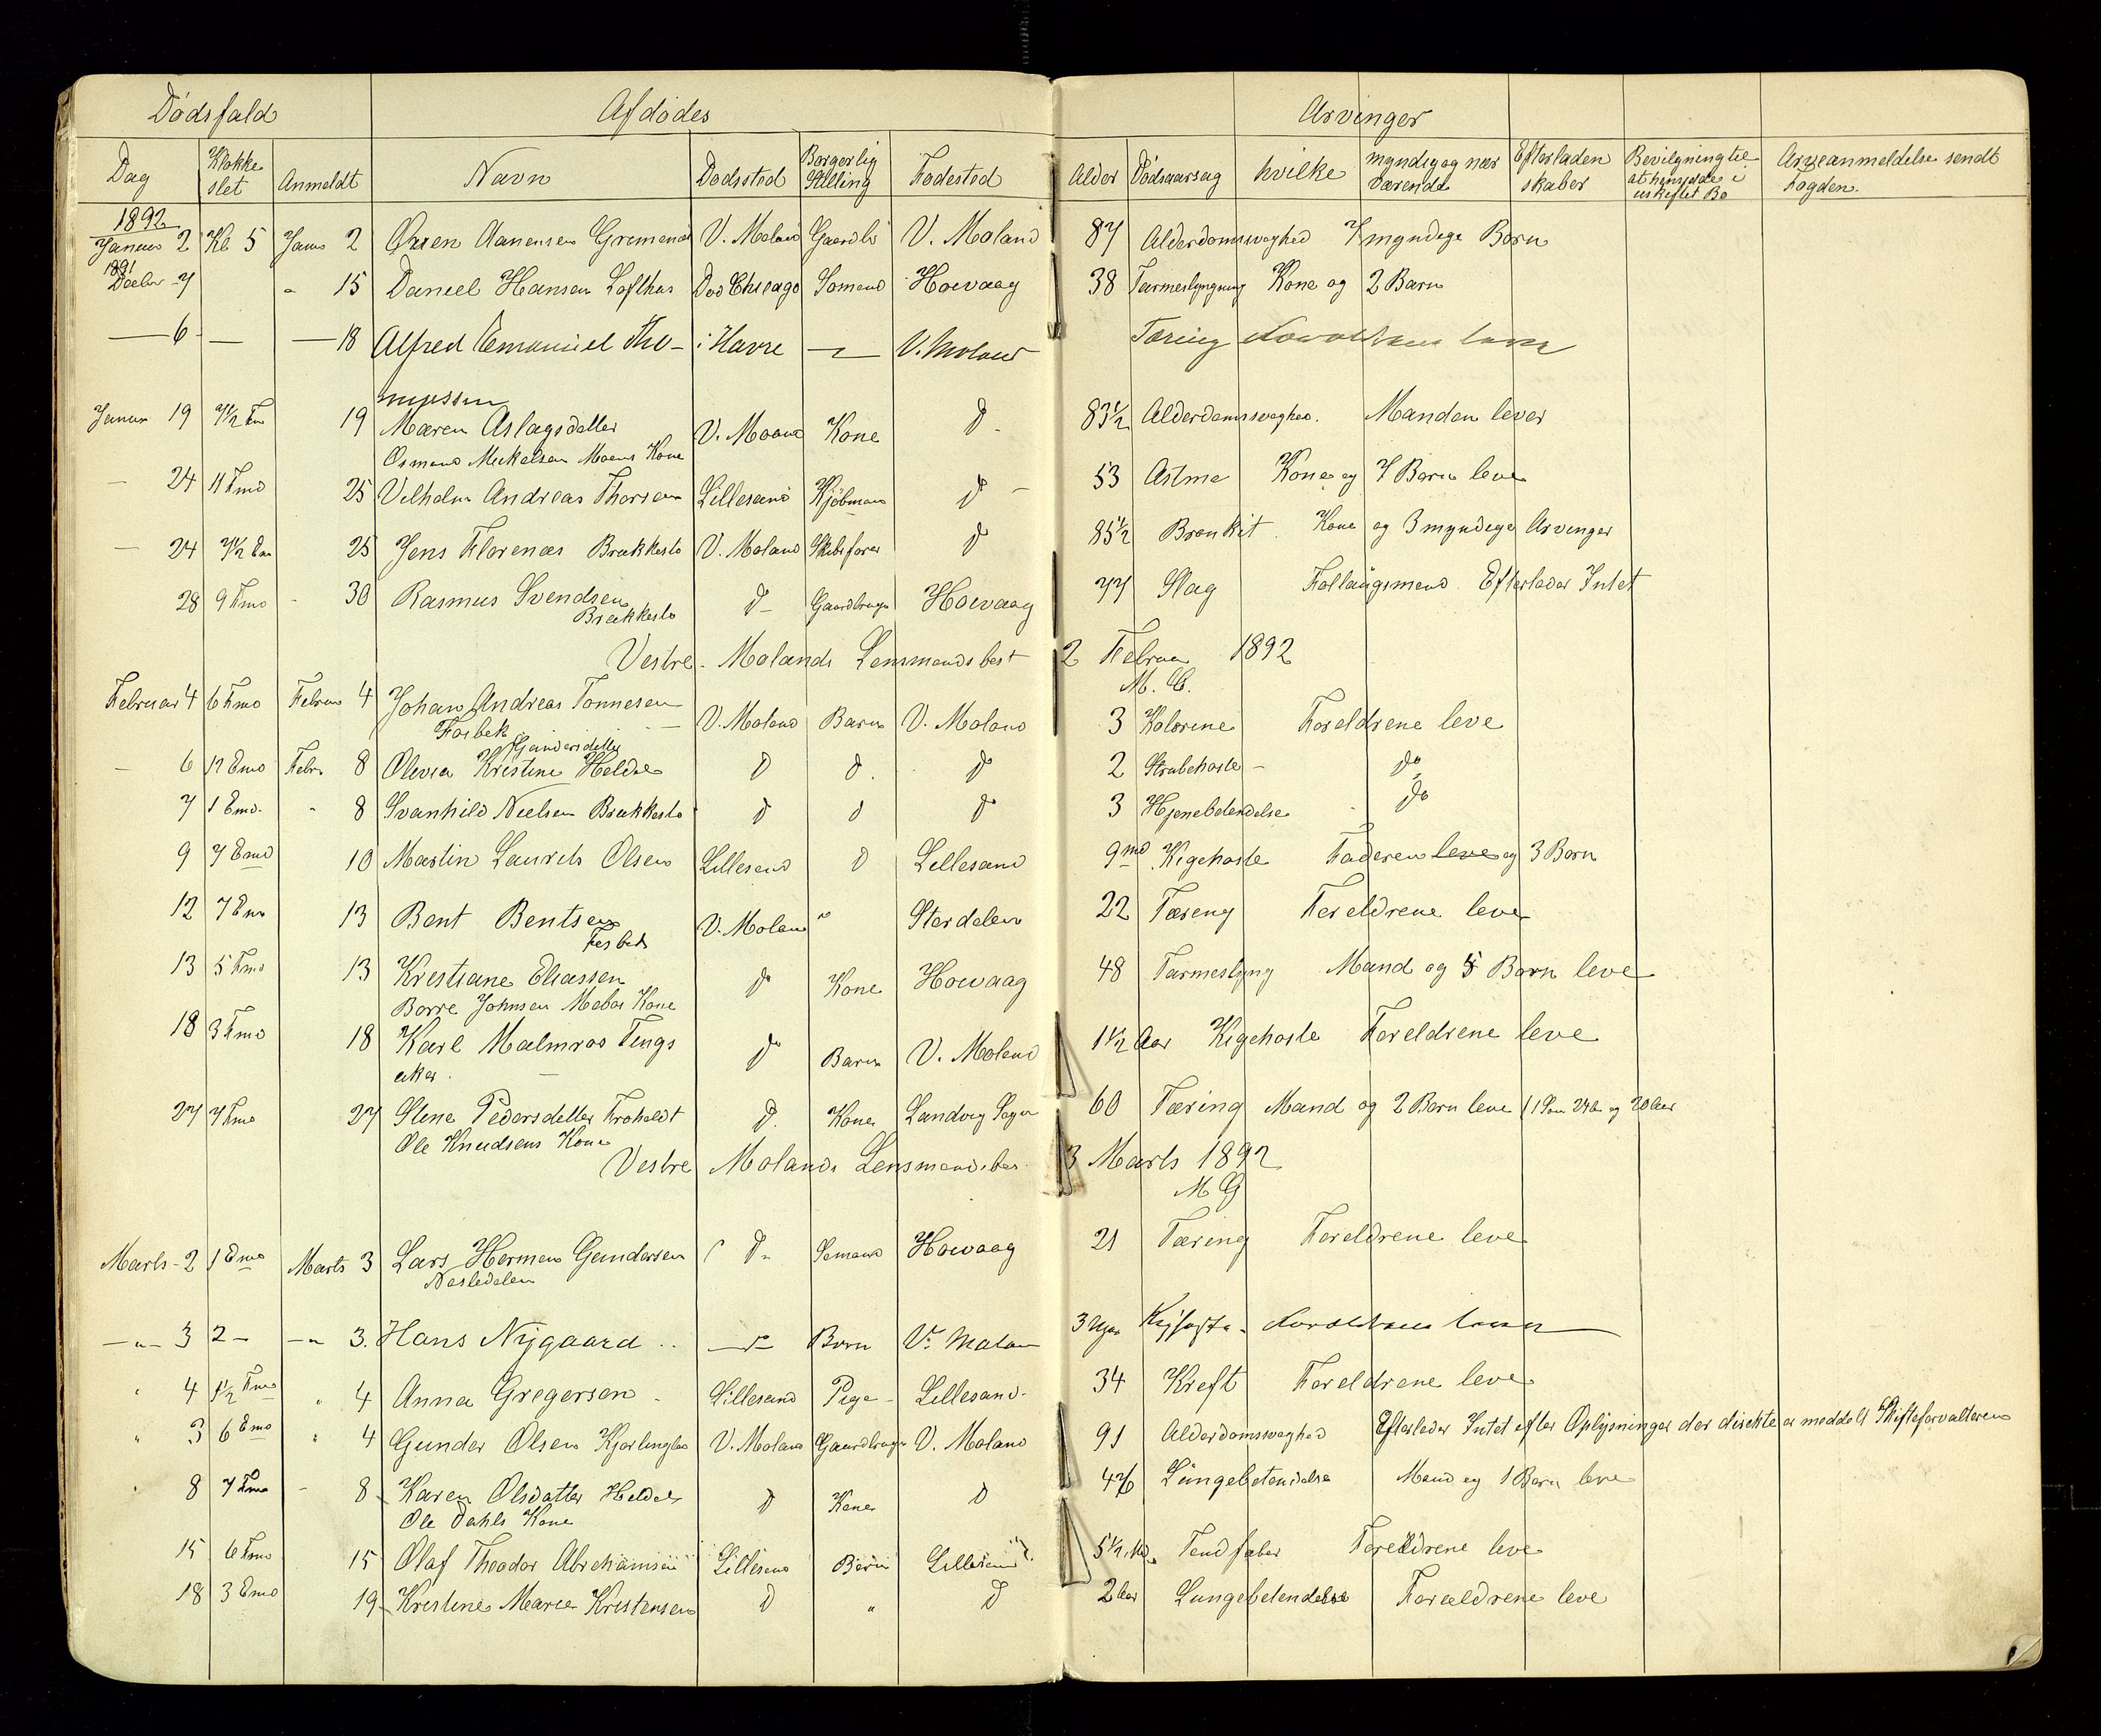 Dödsfald Afdödes Arvinger
Dag Klokke slet Anmeldt Navn Dödssted Borgerlig Stilling Födested Alder Dödsaarsag hvilke myndig og nær værende Efterladen skaber Bevilgning til at hensidde i uskiftet Bo Arveanmeldelse sendt Fogden.
1892
Januar 2 Kl 5 Janu 2 Osen Aanensen Gremenæs V. Moland V. Moland 87 Alderdomsvaghed 7 myndige Börn
1891
Decbr 7 " 15 Daniel Hansen Lofthus Död Chicago Sömand Höivaag 38 Tarmeslyngning Kone og 2 Barn
— 6 — — 18 Alfred Emanuel Tho- i Havre — V. Moland Tæring Forældrene leve
Januar 19 7½ Fm 19 Maren Aslagsdatter V. Moland Kone d 83½ Alderdomsvaghed. Manden lever
Osmund Mikelsen Moens Kone
— 24 11 Fmd 25 Vilhelm Andreas Thorsen Lillesand Kjöbmand do — 53 Astma Kone og 7 Börn leve
— 24 7½ Em 25 Jens Florenæs Brækkestö V. Moland Skibsförer do 85½ Bronkit. Kone og 3 myndige Arvinger
28 9 Fmd 30 Rasmus Svendsen d- Gaardbruger Höivaag 77 Slag Fatlaugsmand. Efterlader Intet
Brækkestö
Vestre-Molands Lensmandsbest 2 Februar 1892
M. G.
Februar 4 6 Fmd Februar 4 Johan Andreas Tönnesen V. Moland Barn V. Moland 3 Kolorine Foreldrene leve
Fosbek
Gundersdatter
— 6 12 Emd Febr. 8 Olevia Kristine Heldal d d. do 2 Strubehoste - do
7 1 Emd. " 8 Svanhild Nielsen Brækkestö d d do 3 Hjenebetendelse do
9 7 Emd 10 Martin Laurits Olsen Lillesand d Lillesand 9 md Kigehoste Faderen leve og 3 Börn
12 7 Em 13 Bent Bentsen V. Moland " Stördalen 22 Tæring Foreldrene leve
Fosbek
13 5 Fmd 13 Kristiane Eliassen do Kone Höivaag 48 Tarmeslyng Mand og 5 Börn leve
Börre Johnsen Mebös Kone
18 3 Fmd 18 Karl Malmros Tings do Barn V. Moland 1½ Aar Kigehoste Foreldrene leve
aker.
27 7 Fmd 27 Stine Pedersdatter Froholdt d. Kone Landvig Sogn 60 Tæring Mand og 2 Börn leve og 20 Aar
Ole Knudsens Kone
Vestre Molands Lensmandsbes. 3 Marts 1892
M G
Marts-2 1 Emd Marts 3 Lars Herman Gundersen d- Sömand Höivaag 21 Tæring Foreldrene leve
Nesledalen
—"— 3 2 — —" 3. Hans Nygaard .. Barn V. Moland 3 Kighoste. Forældrene leve
" 4 1½ Fmd " 4 Anna Gregersen - Lillesand Pige - Lillesand- 34 Kreft Foreldrene leve
" 3 6 Emd " 4 Gunder Olsen V. Moland Gaardbruger V. Moland 91 Alderdomsvaghed Efterlader Intet efter Oplysninger der direkte er meddelt Skifteforvalteren
8 7 Fmd - 8 Karen Olsdatter Heldal d Kone d Lungebetendelse Mand og 1 Barn leve
Ole Dahls Kone
15 6 Fmd 15 Olaf Theodor Abrehamsen Lillesand Barn Lillesand 5½ Md. Tendfeber Foreldrene leve
18 3 Emd 19 Kristine Marie Kristensen d " d 2 Aar Lungebetendelse Foreldrene leve